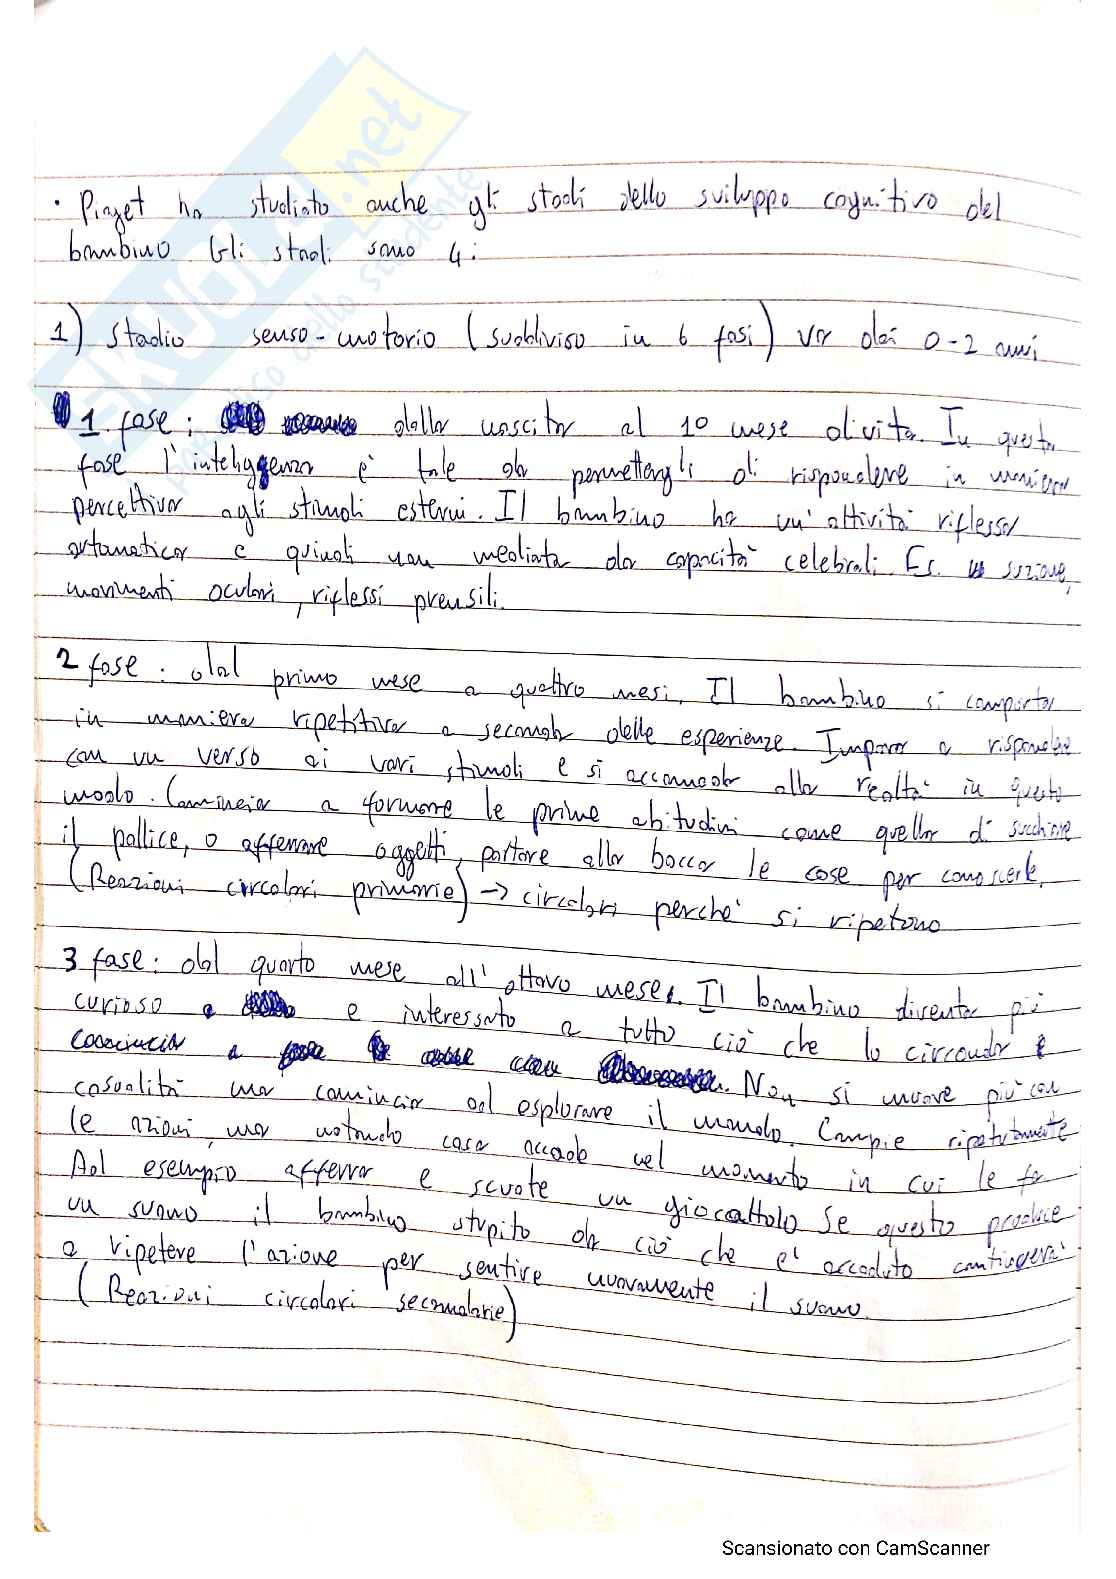 · Piaget ha studiato anche gli stadi dello sviluppo cognitivo del
bambino Gli stadi sono 4:
1) stadio senso-motorio (suddiviso in 6 fasi) va dai 0-2 anni
1 fase: dalla nascita al 1° mese di vita. In questa
fase l'inteliggenza è tale da permettergli di rispondere in maniera
percettiva agli stimoli esterni. Il bambino ha un'attività riflessa
automatica e quindi non mediata da capacità celebrali. Es. suzione,
movimenti oculari, riflessi prensili.
2 fase: dal primo mese a quattro mesi. Il bambino si comporta
in maniera ripetitiva a seconda delle esperienze. Impara a rispondere
con un verso ai vari stimoli e si accomoda alla realtà in questo
modo. Comincia a formare le prime abitudini come quella di succhiare
il pollice, o afferrare oggetti, portare alla bocca le cose per conoscerle.
(Reazioni circolari primarie) → circolari perchè si ripetono
3 fase: dal quarto mese all'ottavo mese. Il bambino diventa più
curioso e interessato a tutto ciò che lo circonda e
comincia a. Non si muove più con
casualità ma comincia ad esplorare il mondo. Compie ripetutamente
le azioni, ma notando cosa accade nel momento in cui le fa
Ad esempio afferra e scuote un giocattolo se questo produce
un suono il bambino stupito da ciò che è accaduto continuerà
a ripetere l'azione per sentire nuovamente il suono.
(Reazioni circolari secondarie)
SKUOLA.net
paradiso dello studente
Scansionato con CamScanner